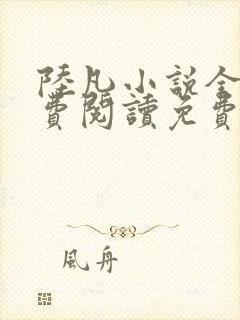 陸凡小說全
費閱讀免費
風舟